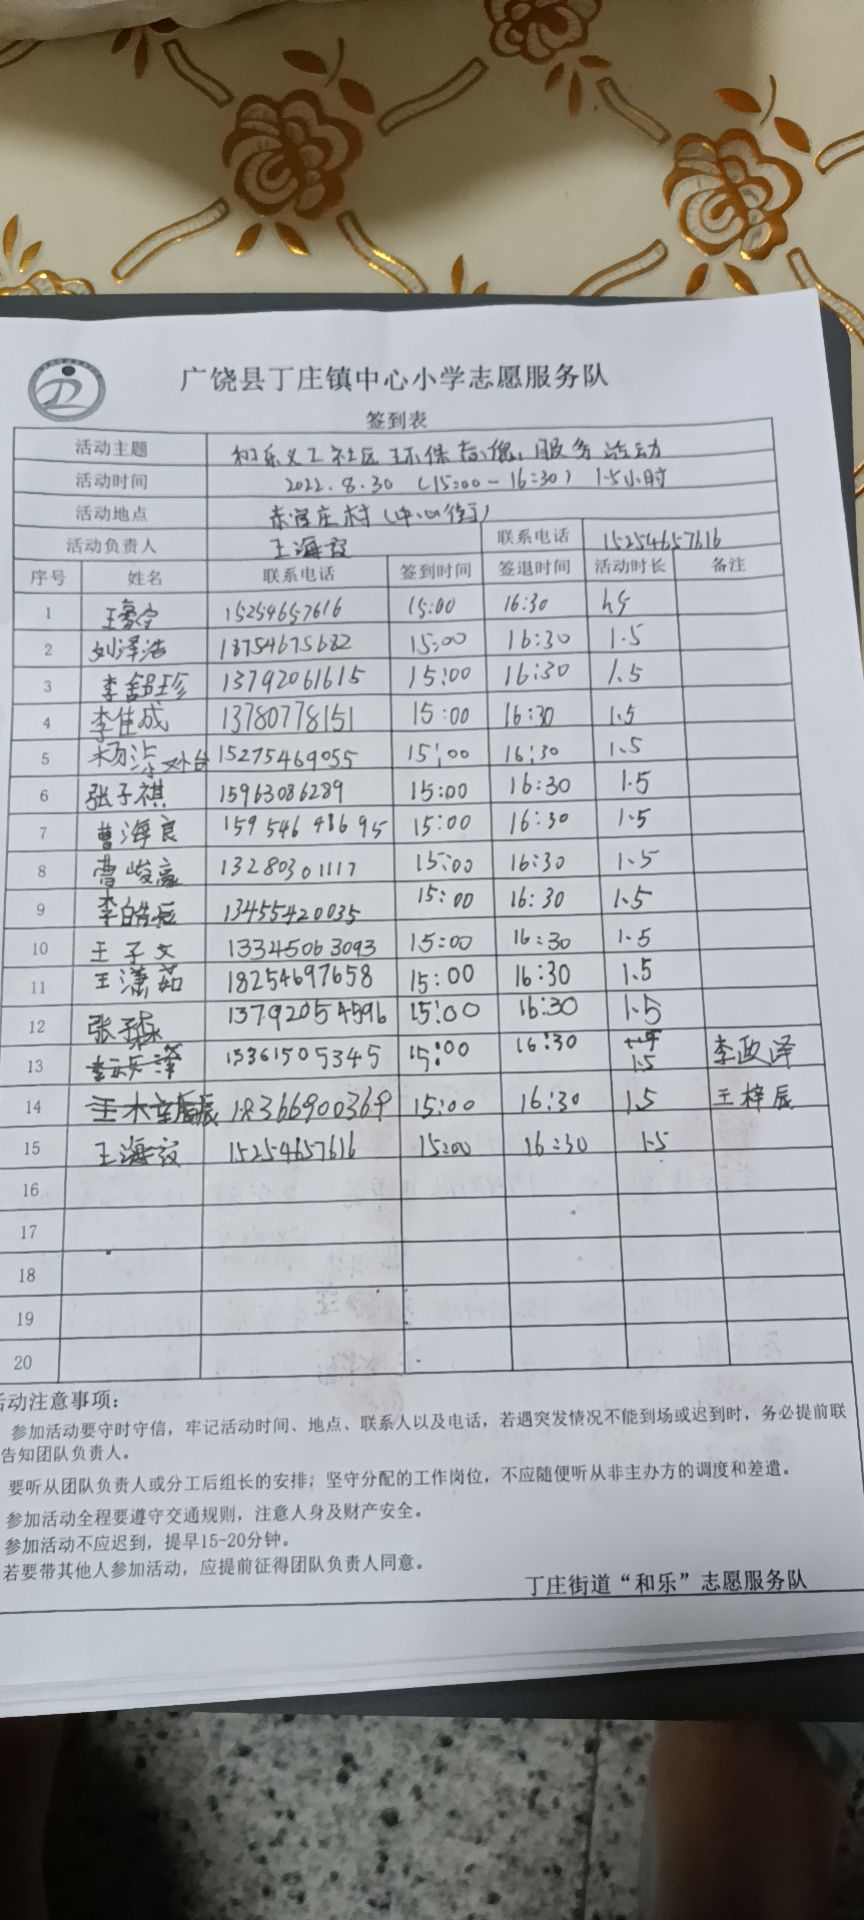 广饶县丁庄镇中心小学志愿服务队
签到表
活动主题 和乐义工社区环保志愿服务活动
活动时间 2022.8.30 (15:00-16:30) 1.5小时
活动地点 庄村(中心街)
活动负责人 王海 联系电话 15254657616
序号 姓名 联系电话 签到时间 签退时间 活动时长 备注
1 王 15254657616 15:00 16:30
2 刘泽浩 13754675682 15:00 16:30 1.5
3 李 珍 13792061615 15:00 16:30 1.5
4 李佳成 13780778151 15:00 16:30 1.5
5 杨 15275469055 15:00 16:30 1.5
6 张子祺 15963086289 15:00 16:30 1.5
7 曹海良 159 546 48695 15:00 16:30 1.5
8 曹峻豪 13280301117 15:00 16:30 1.5
9 李皓辰 13455420035 15:00 16:30 1.5
10 王子文 13345063093 15:00 16:30 1.5
11 王潇茹 18254697658 15:00 16:30 1.5
12 张 13792054596 15:00 16:30 1.5
13 13361505345 15:00 16:30 1.5 李政泽
14 18366900369 15:00 16:30 1.5 王梓辰
15 王海 15254657616 15:00 16:30 1.5
16
17
18
19
20
活动注意事项:
参加活动要守时守信,牢记活动时间、地点、联系人以及电话,若遇突发情况不能到场或迟到时,务必提前联
告知团队负责人。
要听从团队负责人或分工后组长的安排;坚守分配的工作岗位,不应随便听从非主办方的调度和差遣。
参加活动全程要遵守交通规则,注意人身及财产安全。
参加活动不应迟到,提早15-20分钟。
若要带其他人参加活动,应提前征得团队负责人同意。
丁庄街道“和乐”志愿服务队